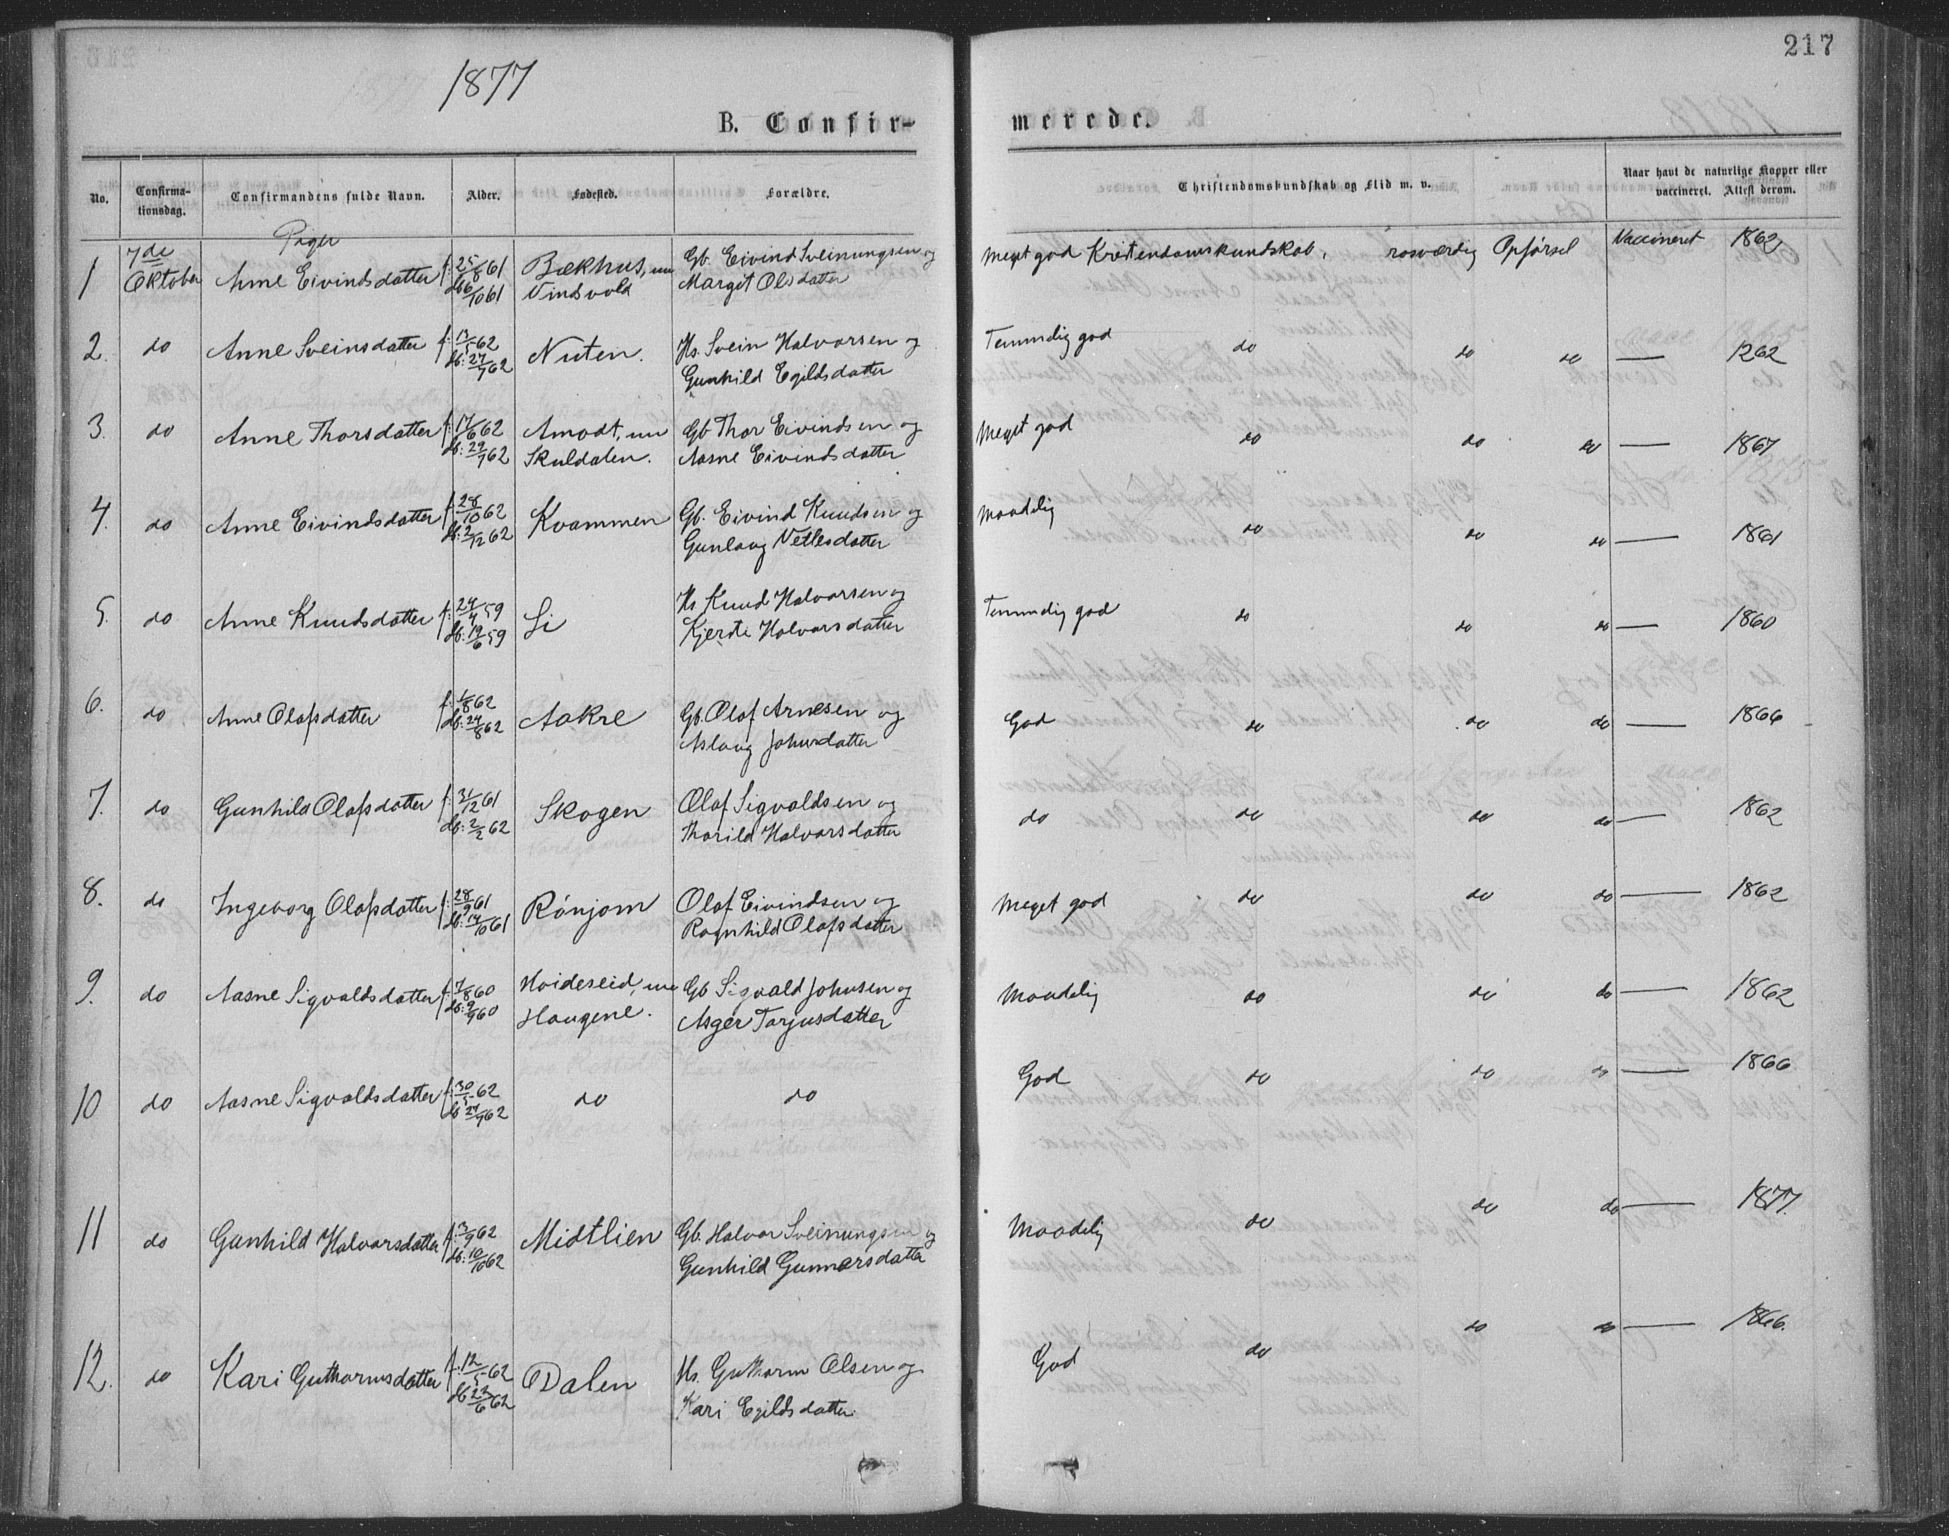 1877
217
B. Confir-
merede.
No.
Confirma-
tionsdag.
Confirmandens fulde Navn.
Alder.
Fødested.
Forældre.
Christendomskundskab og Flid m. v.
Naar havt de naturlige Kopper eller
vaccineret. Attest derom.
Piger
1 7de Oktober Anne Eivindsdatter f. 25/8 61 db 6/10 61 Bækhus, un Vindsvold Gb. Eivind Sveinungsen og Margit Olsdatter Meget god Kristendomskundskab, rosværdig Opførsel Vaccineret 1862
2. do Anne Sveinsdatter f. 13/5 62 db. 27/7 62 Nuten. Hs. Svein Halvorsen og Gunhild Egilsdatter Temmelig god do do do — 1262
3. do Anne Thorsdatter f. 17/6 62 db. 29/7 62 Amodt, un Skuldalen. Gb Thor Eivindsen og Aasne Eivindsdatter Meget god do do do — 1867
4. do Anne Eivindsdatter f. 28/10 62 db. 2/12 62 Kvammen Gb. Eivind Knudsen og Gunlaug Vetlesdatter Maadelig do do do — 1861
5. do Anne Knudsdatter f. 24/4 59 db. 19/6 59 Li Hs Knud Halvorsen og Kjersti Halvorsdatter Temmelig god do do do — 1860
6. do Anne Olafsdatter f. 1/8 62 db. 24/8 62 Aakre Gb. Olaf Arnesen og Aslaug Johnsdatter God do do do — 1866
7. do Gunhild Olafsdatter f. 31/12 61 db. 2/2 62 Skogen Olaf Sigvaldsen og Thorild Halvorsdatter do do do do — 1862
8. do Ingeborg Olafsdatter f. 28/9 61 db. 14/10 61 Rønjom Olaf Eivindsen og Ragnhild Olafsdatter Meget god do do do — 1862
9. do Aasne Sigvaldsdatter f. 7/8 60 db. 9/9 60 Hoideseid, un Haugene. Gb Sigvald Johnsen og Asger Torjusdatter Maadelig do do do — 1862
10 do Aasne Sigvaldsdatter f. 30/5 62 db 27/7 62 do do God do do do — 1866
11 do Gunhild Halvorsdatter f. 3/9 62 db. 10/10 62 Midtlien Gb. Halvor Sveinungsen og Gunhild Gunnarsdatter Maadelig do do do — 1877
12. do Kari Guthormsdatter f. 12/5 62 db 22/6 62 Dalen Hs. Guthorm Olsen og Kari Egilsdatter. God do do do — 1866.